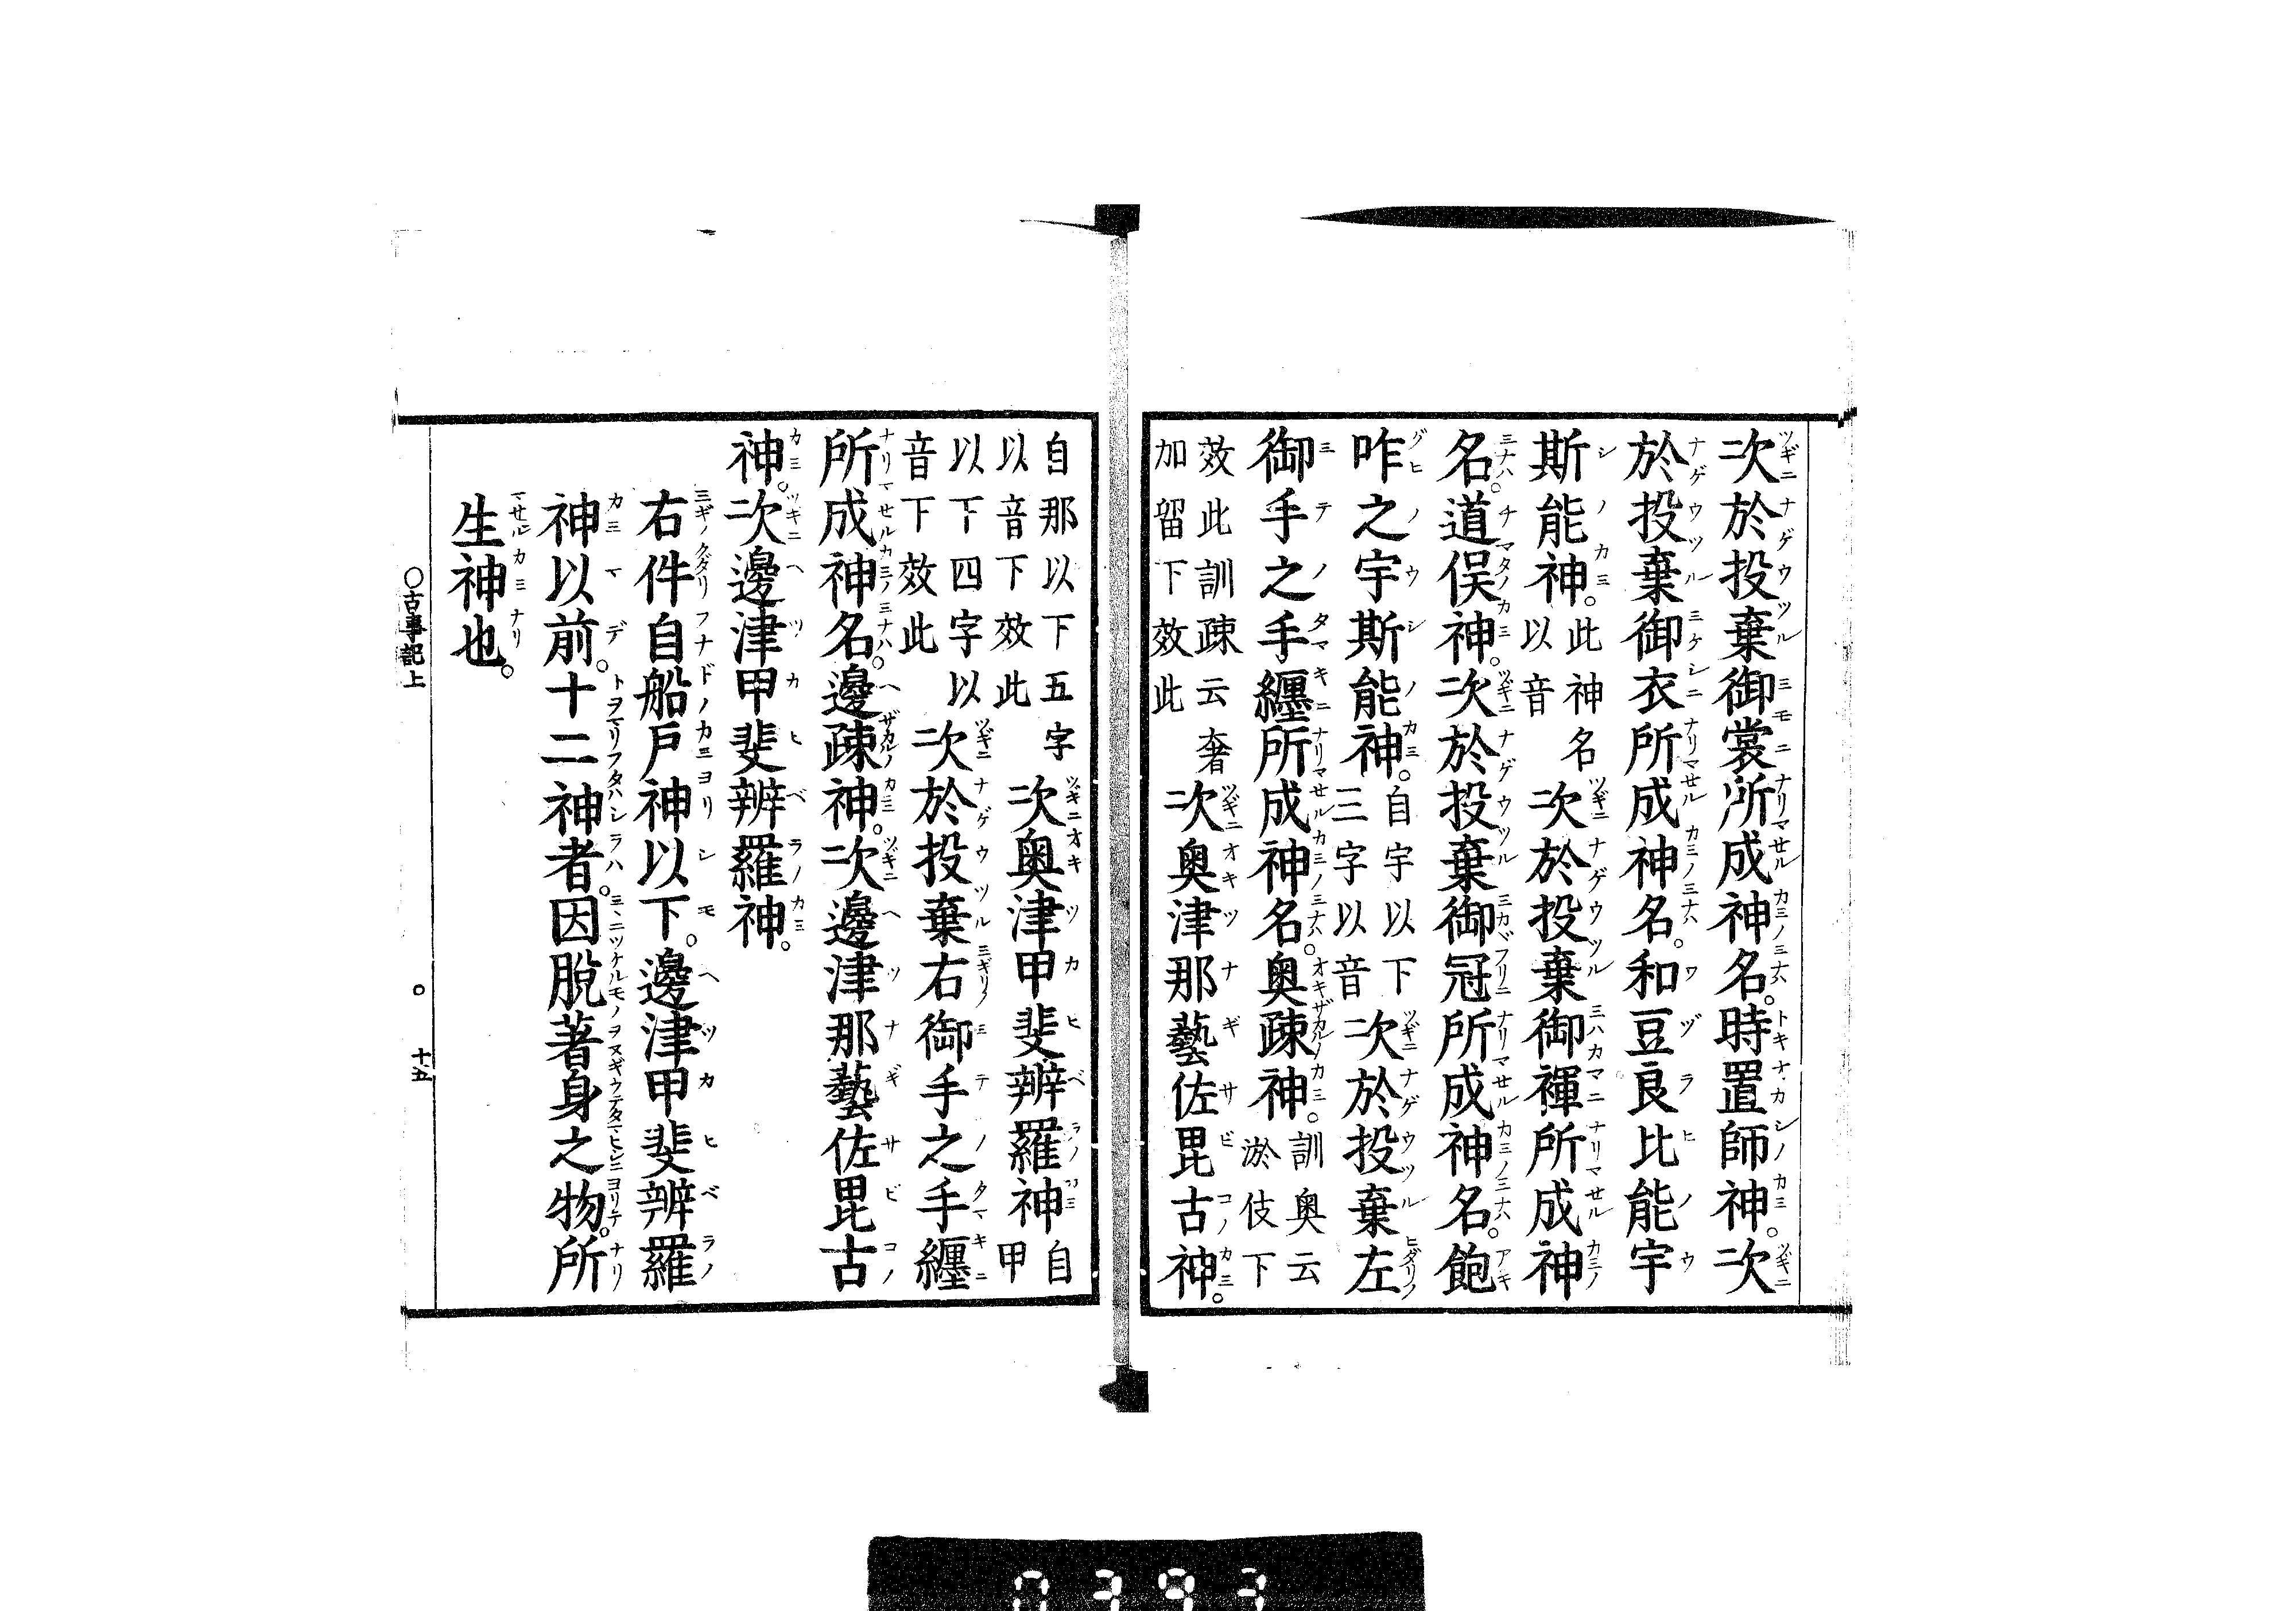 次於投棄御裳所成神名。時置師神。次
於投棄御衣所成神名。和豆良比能宇
斯能神。此神名以音次於投棄御褌所成神
名。道俣神。次於投棄御冠所成神名。飽
咋之宇斯能神。自宇以下三字以音次於投棄左
御手之手纏所成神名。奥疎神。訓奥云淤伎下
效此訓疎云奢加留下效此次奥津那藝佐毘古神。
自那以下五字以音下效此次奥津甲斐辨羅神自甲
以下四字以音下效此次於投棄右御手之手纏
所成神名。邊疎神。次邊津那藝佐毘古
神。次邊津甲斐辨羅神。
右件自船戸神以下。邊津甲斐辨羅
神以前。十二神者。因脱著身之物。所
生神也。
○古事記上 ○ 十五
0393